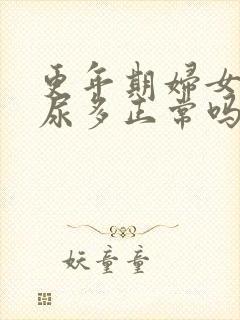 更年期婦女
尿多正常吗
妖童童